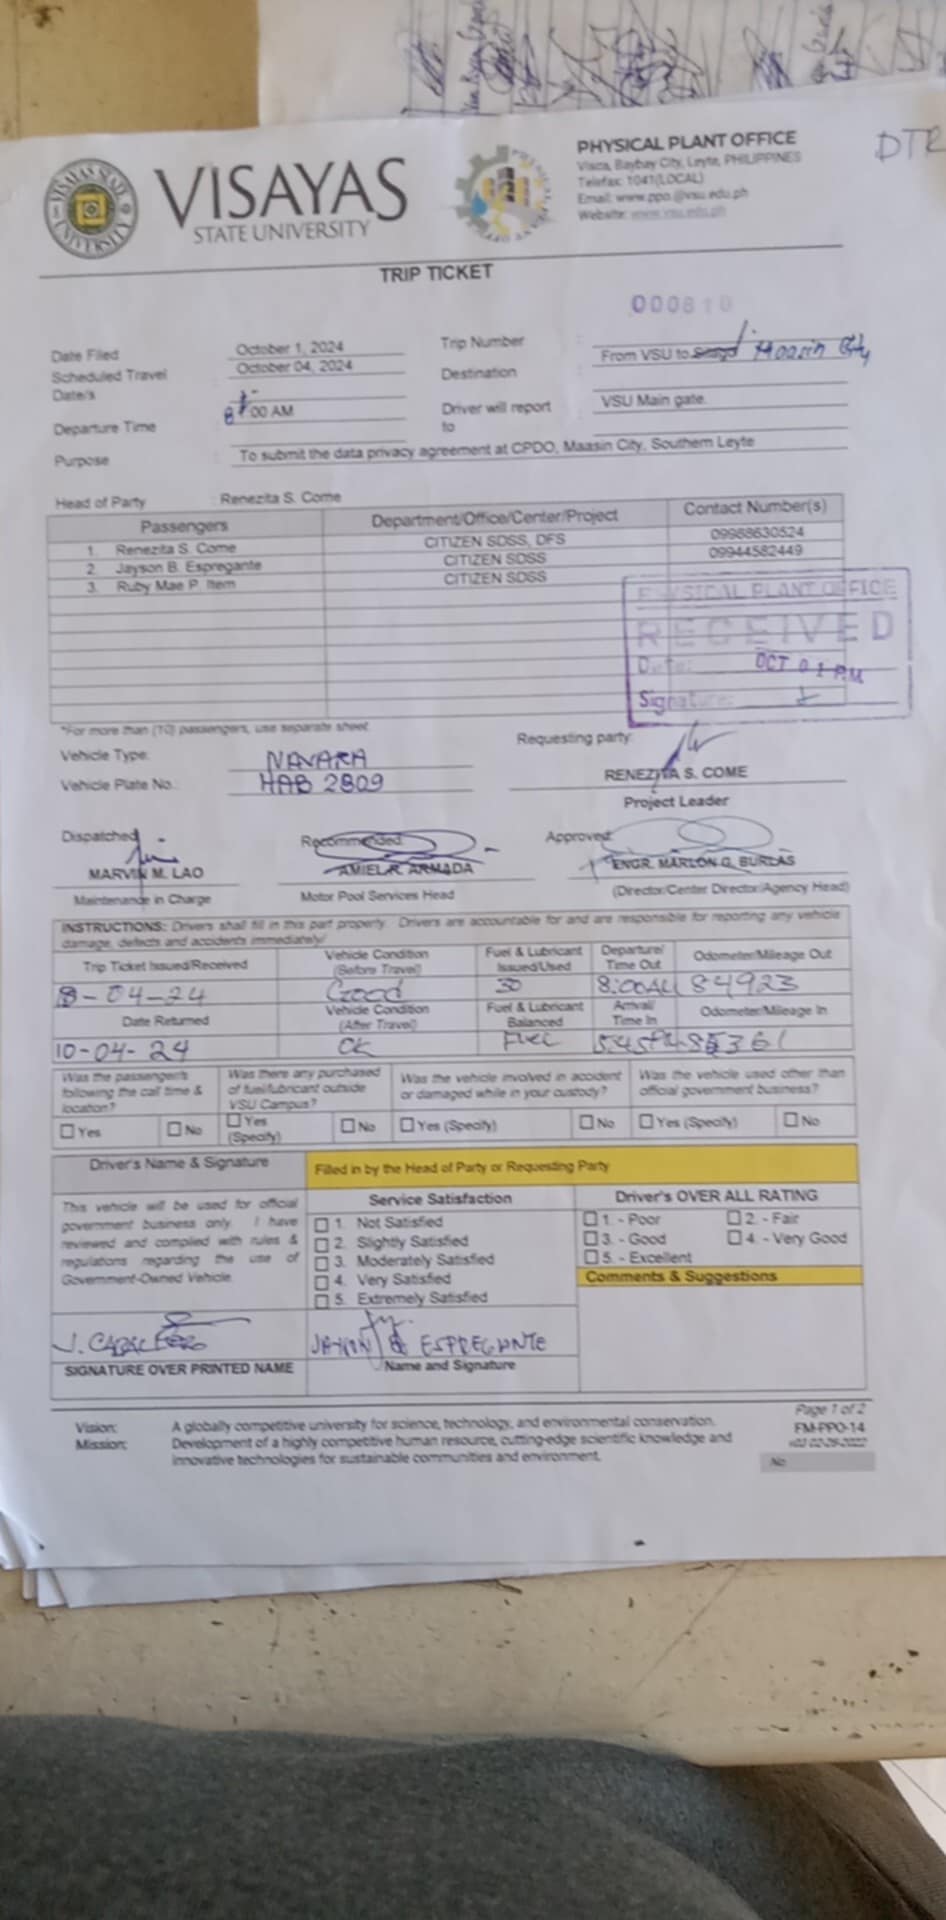 DTR
VISAYAS
STATE UNIVERSITY
PHYSICAL PLANT OFFICE
Visca, Baybay City, Leyte, PHILIPPINES
Telefax: 1041(LOCAL)
Email: www.ppo.@vsu.edu.ph
Website: www.vsu.edu.ph
TRIP TICKET
Date Filed : October 1, 2024
Trip Number : 000810
Scheduled Travel Date/s : October 04, 2024
Destination : From VSU to Maasin City
Departure Time : 8:00 AM
Driver will report to : VSU Main gate.
Purpose : To submit the data privacy agreement at CPDO, Maasin City, Southern Leyte
Head of Party : Renezita S. Come
Passengers Department/Office/Center/Project Contact Number(s)
1. Renezita S. Come CITIZEN SDSS, DFS 09988630524
2. Jayson B. Espregante CITIZEN SDSS 09944582449
3. Ruby Mae P. Item CITIZEN SDSS
PHYSICAL PLANT OFFICE
RECEIVED
Date: OCT 01 P.M.
Signature:
*For more than (10) passengers, use separate sheet
Vehicle Type: NAVARA
Requesting party:
Vehicle Plate No.: HAB 2809
RENEZITA S. COME
Project Leader
Dispatched: Recommended: Approved:
MARVIN M. LAO AMIEL R. ARMADA ENGR. MARLON G. BURLAS
Maintenance in Charge Motor Pool Services Head (Director/Center Director/Agency Head)
INSTRUCTIONS: Drivers shall fill in this part properly. Drivers are accountable for and are responsible for reporting any vehicle
damage, defects and accidents immediately!
Trip Ticket Issued/Received Vehicle Condition (Before Travel) Fuel & Lubricant Issued/Used Departure/ Time Out Odometer/Mileage Out
-04-24 Good 30 8:00AM 84923
Date Returned Vehicle Condition (After Travel) Fuel & Lubricant Balanced Arrival/ Time In Odometer/Mileage In
10-04-24 OK Fuel 5:45PM 85361
Was the passenger/s following the call time & location? Was there any purchased of fuel/lubricant outside VSU Campus? Was the vehicle involved in accident or damaged while in your custody? Was the vehicle used other than official government business?
☐ Yes ☐ No ☐ Yes (Specify) ☐ No ☐ Yes (Specify) ☐ No ☐ Yes (Specify) ☐ No
Driver's Name & Signature Filled in by the Head of Party or Requesting Party
This vehicle will be used for official
government business only. I have
reviewed and complied with rules &
regulations regarding the use of
Government-Owned Vehicle.
Service Satisfaction
☐ 1. Not Satisfied
☐ 2. Slightly Satisfied
☐ 3. Moderately Satisfied
☐ 4. Very Satisfied
☐ 5. Extremely Satisfied
Driver's OVER ALL RATING
☐ 1. - Poor ☐ 2. - Fair
☐ 3. - Good ☐ 4. - Very Good
☐ 5. - Excellent
Comments & Suggestions
JAYSON B ESPREGANTE
SIGNATURE OVER PRINTED NAME Name and Signature
Page 1 of 2
Vision: A globally competitive university for science, technology, and environmental conservation.
FM-PPO-14
Mission: Development of a highly competitive human resource, cutting-edge scientific knowledge and
innovative technologies for sustainable communities and environment.
No